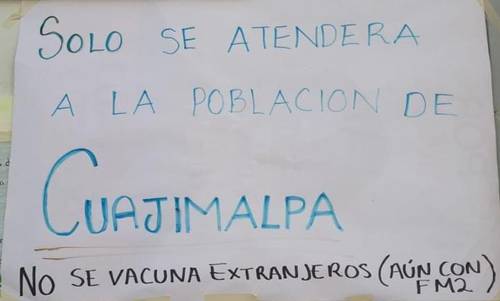 SOLO SE ATENDERA
A LA POBLACION DE
CUAJIMALPA
NO SE VACUNA EXTRANJEROS (AÚN CON FM2)